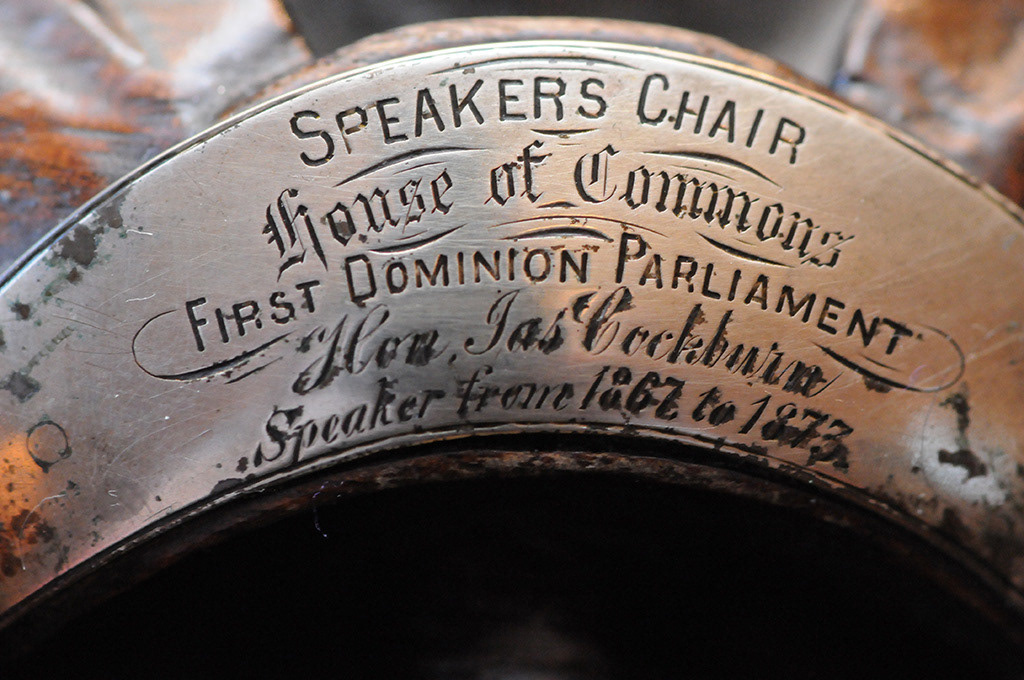 SPEAKERS CHAIR
House of Commons
FIRST DOMINION PARLIAMENT
Hon. Jas Cockburn
Speaker from 1867 to 1873.